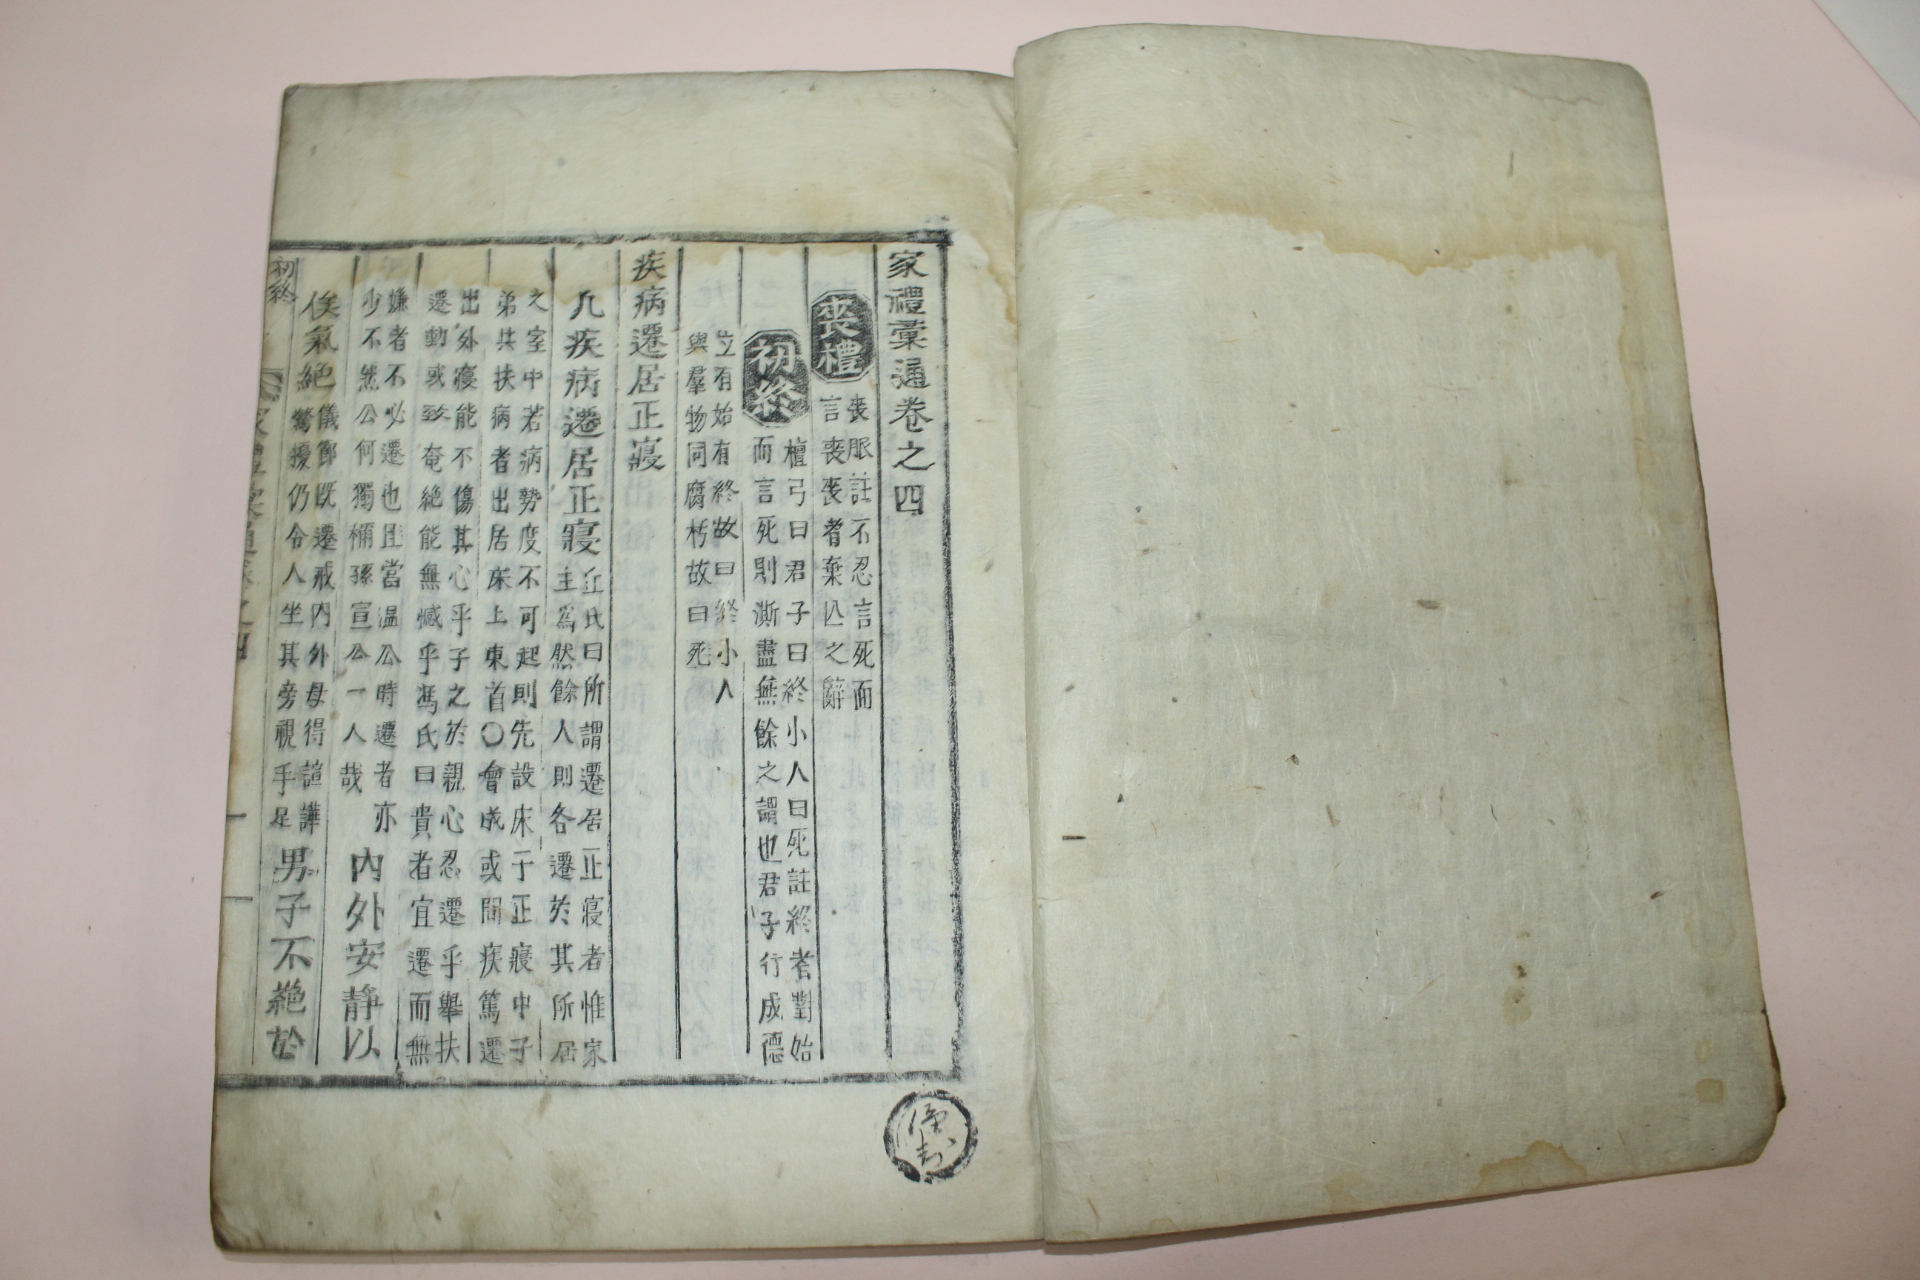 家禮彙通卷之四
喪禮
喪服註不忍言死而
言喪喪者棄亾之辭
初終
檀弓曰君子曰終小人曰死註終者對始
而言死則澌盡無餘之謂也君子行成德
立有始有終故曰終小人
與羣物同腐朽故曰死
疾病遷居正寢
凡疾病遷居正寢
丘氏曰所謂遷居正寢者惟家
主爲然餘人則各遷於其所居
之室中若病勢度不可起則先設床于正寢中子
弟共扶病者出居床上東首〇會成或問疾篤遷
出外寢能不傷其心乎子之於親心忍遷乎舉扶
遷動或致奄絶能無憾乎馮氏曰貴者宜遷而無
嫌者不必遷也且當温公時遷者亦
少不然公何獨稱孫宣公一人哉
內外安静以
俟氣絶
儀節既遷戒內外毋得諠譁
驚擾仍令人坐其旁視手足
男子不絶於
初終
家禮彙通卷之四